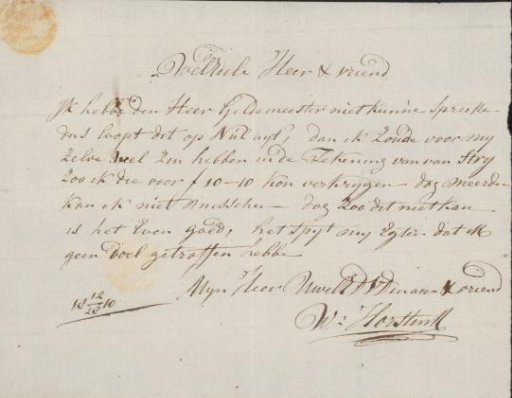 WelEdele Heer & vriend
Ik hebbe den Heer Gildemeester niet kunne spreeke
dus loopt dit op Nul uyt, dan ik zoude voor my
zelve wel zin hebben in de Tekening van van Stry
zoo ik die voor f 10-10 kon verkrygen dog meerder
kan ik niet dog zoo dit niet kan
is het Even goed, het spyt my Egter dat ik
geen doel getroffen hebbe
Myn Heer UwelEd Dienaar & vriend
Wm Horstink